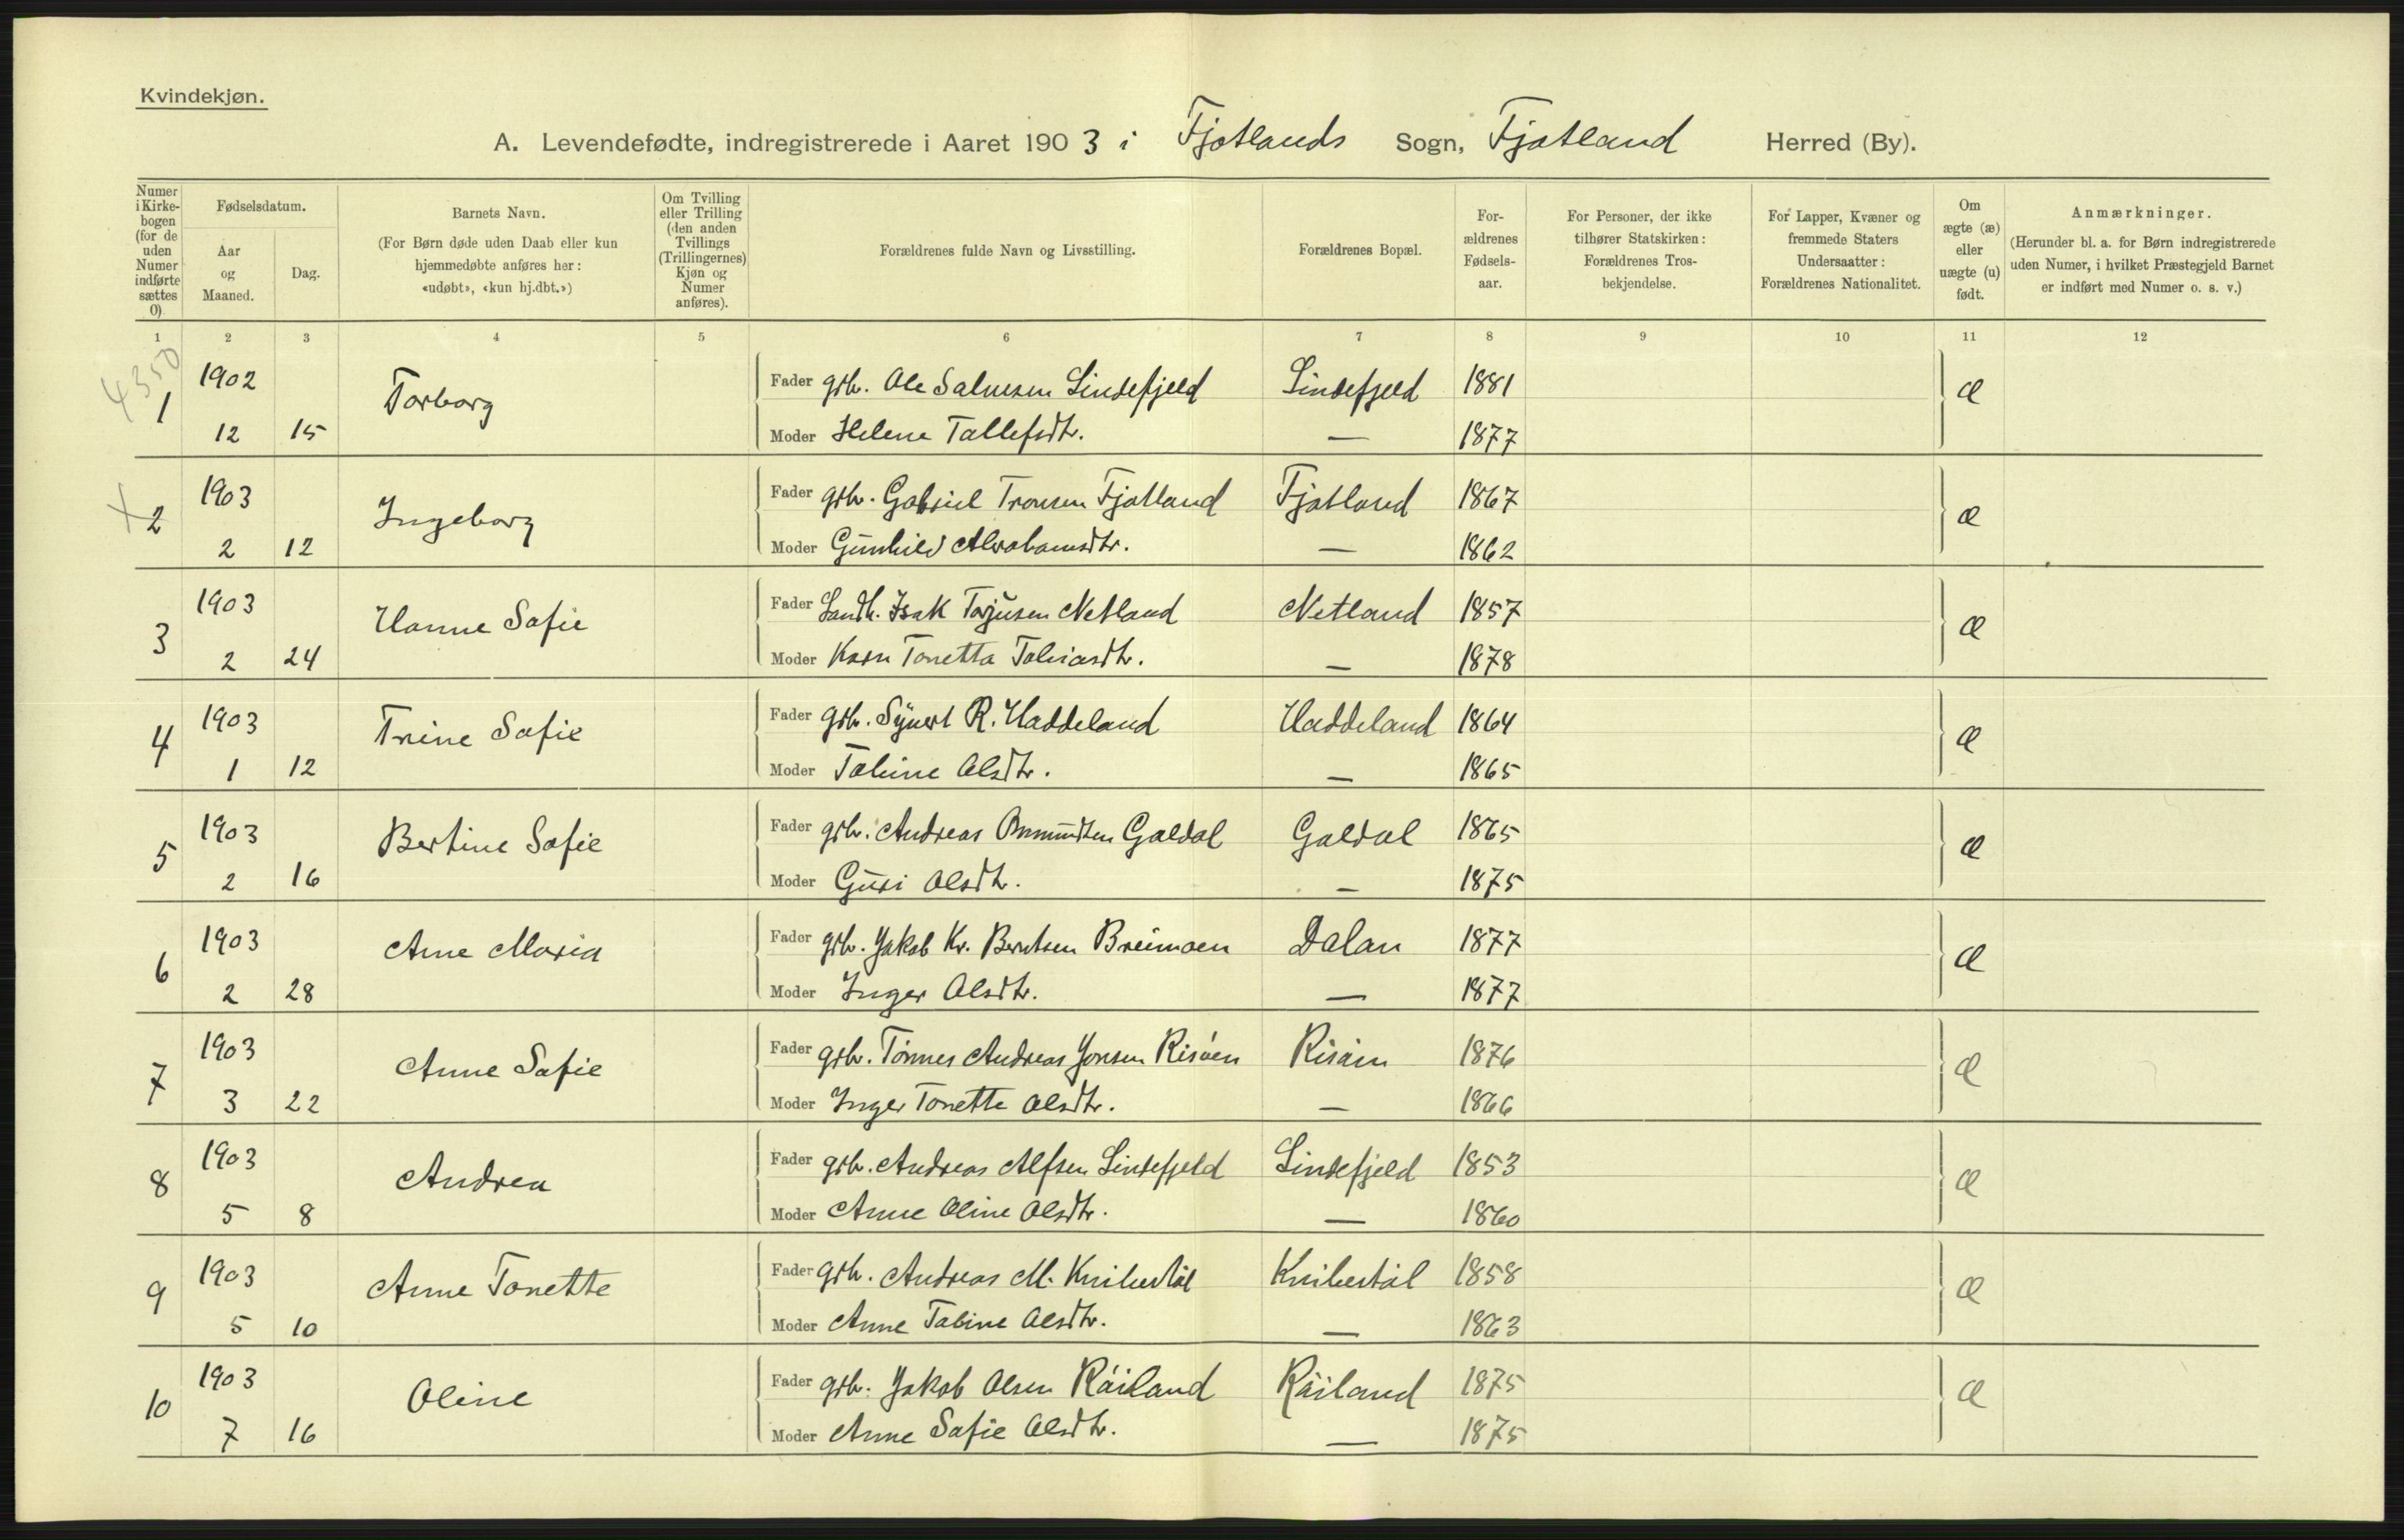 Kvindekjøn.
A. Levendefødte, indregistrerede i Aaret 1903 i Fjotlands Sogn, Fjotland Herred (By).
Numer i Kirkebogen (for de uden Numer indførte sættes 0)
Fødselsdatum.
Aar og Maaned.
Dag.
Barnets Navn.
(For Børn døde uden Daab eller kun hjemmedøbte anføres her: «udøbt», «kun hj.dbt.»)
Om Tvilling eller Trilling (den anden Tvillings (Trillingernes) Kjøn og Numer anføres).
Forældrenes fulde Navn og Livsstilling.
Forældrenes Bopæl.
Forældrenes Fødselsaar.
For Personer, der ikke tilhører Statskirken: Forældrenes Trosbekjendelse.
For Lapper, Kvæner og fremmede Staters Undersaatter: Forældrenes Nationalitet.
Om ægte (æ) eller uægte (u) født.
Anmærkninger.
(Herunder bl. a. for Børn indregistrerede uden Numer, i hvilket Præstegjeld Barnet er indført med Numer o. s. v.)
1 2 3 4 5 6 7 8 9 10 11 12
4350
1 1902 Torborg Fader grb. Ole Salvesen Lindefjeld Lindefjeld 1881 Æ
12 15 Moder Helene Tallefsdtr. — 1877
2 1903 Ingeborg Fader grb. Gabriel Tronsen Fjotland Fjotland 1867 æ
2 12 Moder Gunhild Abrahamsdtr. — 1862
3 1903 Hanne Sofie Fader Isak Torjusen Netland Netland 1857 Æ
2 24 Moder Karn Tonetta Tobiasdtr. — 1878
4 1903 Trine Sofie Fader grb. Syvert R. Haddeland Haddeland 1864 Æ
1 12 Moder Tobine Olsdtr. — 1865
5 1903 Bertine Sofie Fader grb. Andreas Omundsen Galdal Galdal 1865 Æ
2 16 Moder Guri Olsdtr. — 1875
6 1903 Ane Maria Fader grb. Jakob Kr. Berntsen Breimoen Dalan 1877 Æ
2 28 Moder Inger Olsdtr. — 1877
7 1903 Anne Sofie Fader grb. Tönnes Andreas Jonsen 1876 Æ
3 22 Moder Inger Tonette Olsdtr. — 1866
8 1903 Andrea Fader grb. Andreas Alfsen Lindefjeld Lindefjeld 1853 Æ
5 8 Moder Anne Oline Olsdtr. — 1860
9 1903 Anne Tonette Fader grb. Andreas M. 1858 Æ
5 10 Moder Anne Tobine Olsdtr. — 1863
10 1903 Oline Fader grb. Jakob Olsen Råiland Råiland 1875 Æ
7 16 Moder Anne Sofie Olsdtr. — 1875